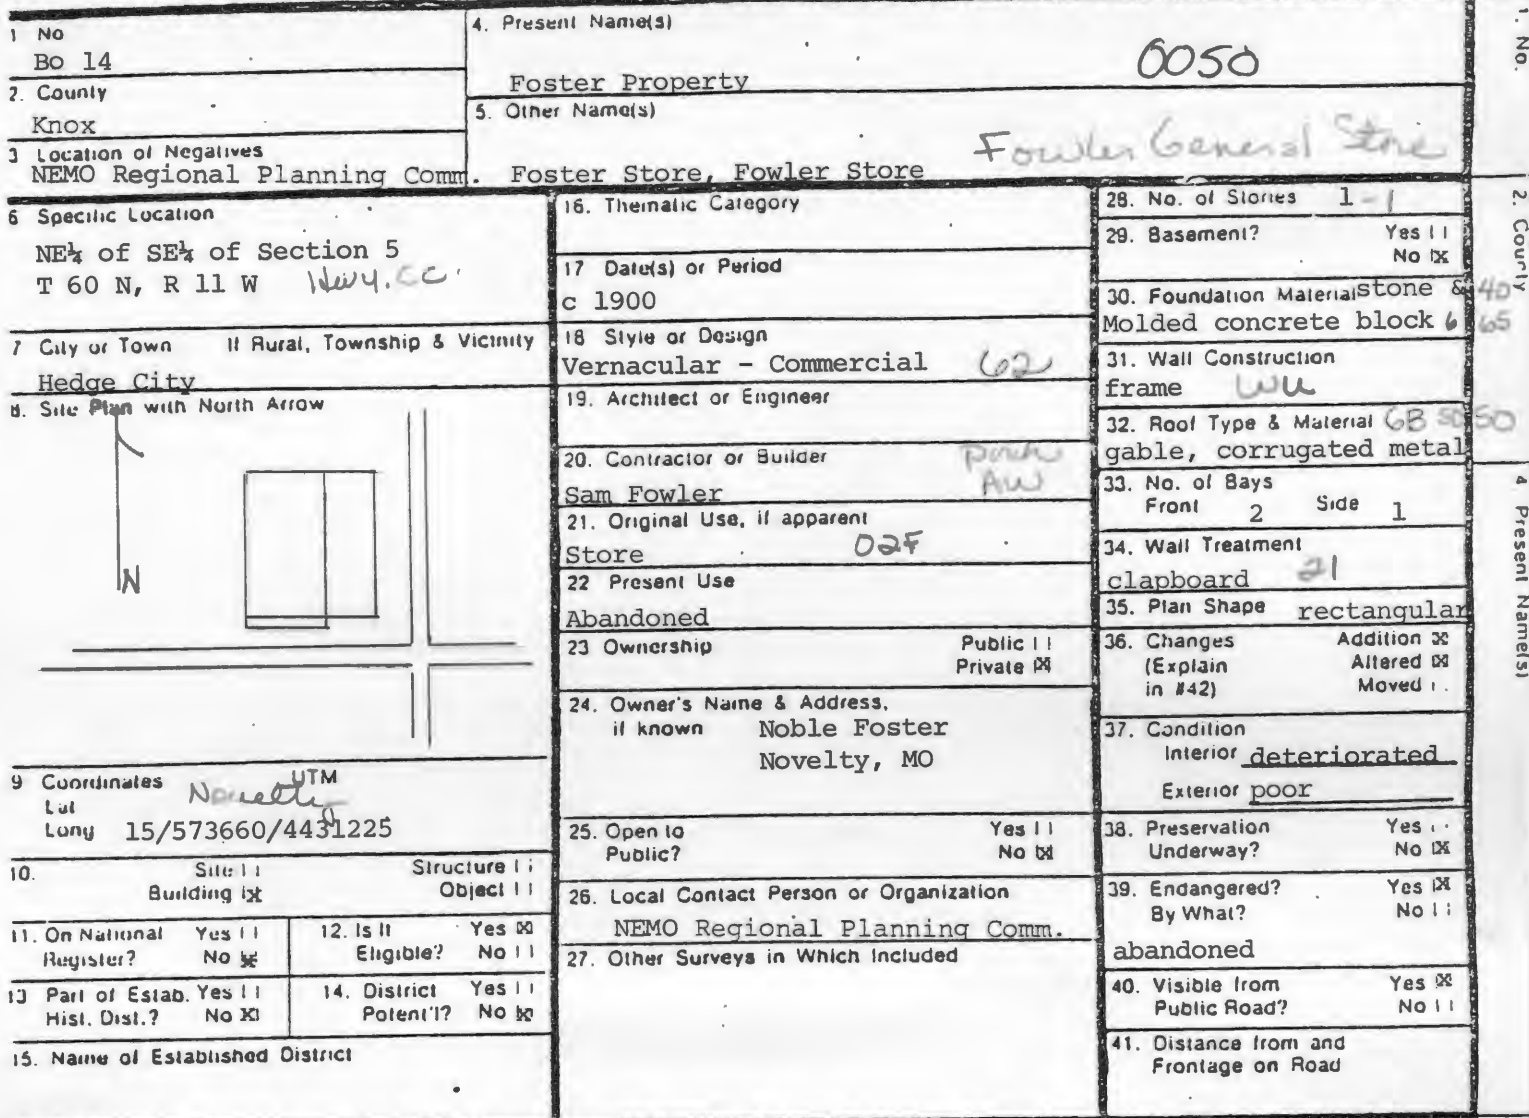 1 No
Bo 14
2. County
Knox
3 Location of Negatives
NEMO Regional Planning Comm.
4. Present Name(s)
0050
Foster Property
5. Other Name(s)
Fowler General Store
Foster Store, Fowler Store
6 Specific Location
NE¼ of SE¼ of Section 5
T 60 N, R 11 W Hwy. CC.
7 City or Town If Rural, Township & Vicinity
Hedge City
8. Site Plan with North Arrow
N
9 Coordinates UTM
Lat Novelty
Long 15/573660/4431225
10. Site | | Structure | |
Building |X| Object | |
11. On National Register? Yes | | No |X|
12. Is It Eligible? Yes |X| No | |
13 Part of Estab. Hist. Dist.? Yes | | No |X|
14. District Potent'l? Yes | | No |X|
15. Name of Established District
16. Thematic Category
17 Date(s) or Period
c 1900
18 Style or Design
Vernacular - Commercial 62
19. Architect or Engineer
20. Contractor or Builder porch
Sam Fowler AW
21. Original Use, if apparent
Store 02F
22 Present Use
Abandoned
23 Ownership Public | |
Private |X|
24. Owner's Name & Address,
if known Noble Foster
Novelty, MO
25. Open to Yes | |
Public? No |X|
26. Local Contact Person or Organization
NEMO Regional Planning Comm.
27. Other Surveys in Which Included
28. No. of Stories 1 - 1
29. Basement? Yes | |
No |X
30. Foundation Material stone & 40
Molded concrete block 6 65
31. Wall Construction
frame WU
32. Roof Type & Material GB 50
gable, corrugated metal
33. No. of Bays
Front 2 Side 1
34. Wall Treatment
clapboard 21
35. Plan Shape rectangular
36. Changes Addition |X|
(Explain Altered |X|
in #42) Moved | |
37. Condition
Interior deteriorated
Exterior poor
38. Preservation Yes | |
Underway? No |X|
39. Endangered? Yes |X|
By What? No | |
abandoned
40. Visible from Yes |X|
Public Road? No | |
41. Distance from and
Frontage on Road
1. No.
2. County
4 Present Name(s)